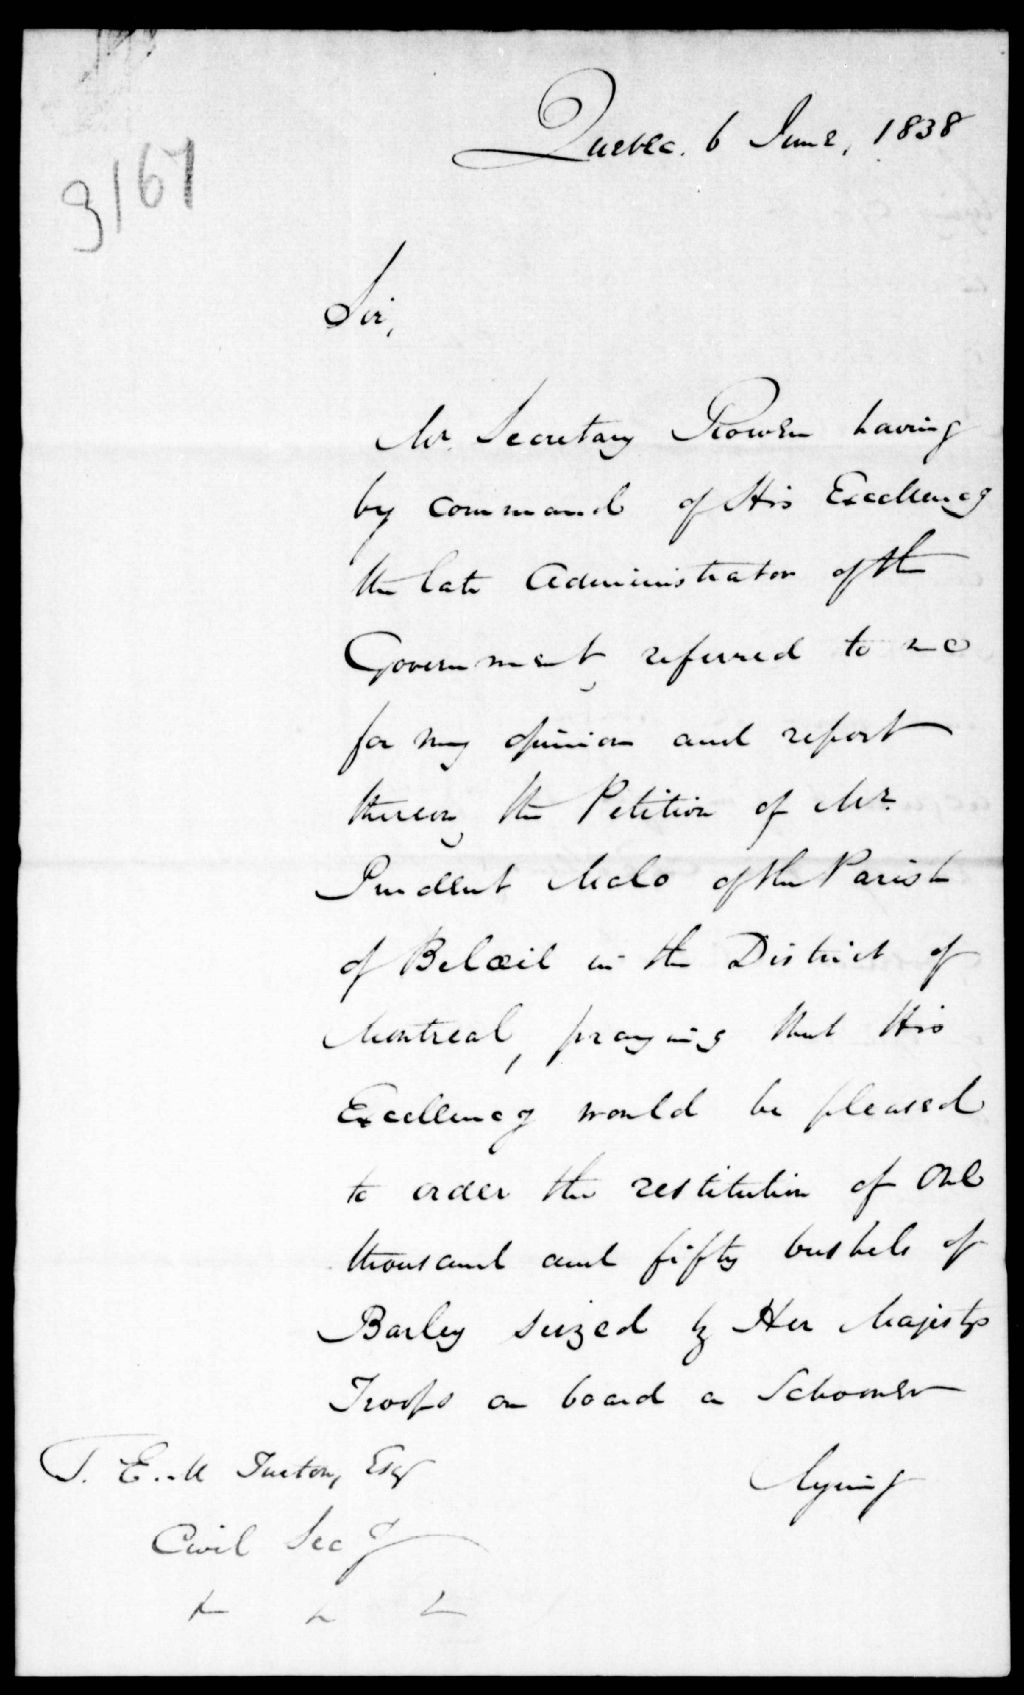 Quebec. 6 June, 1838
3167
Sir,
Mr. Secretary Rowan having
by command of His Excellency
the late Administrator of the
Government, referred to me
for my opinion and report
thereon, the Petition of Mr.
Prudent Malo of the Parish
of Belœil in the District of
Montreal, praying that His
Excellency would be pleased
to order the restitution of One
thousand and fifty bushels of
Barley seized by Her Majestys
Troops on board a Schooner
lying
T. E. M Turton, Esqr
Civil Secy